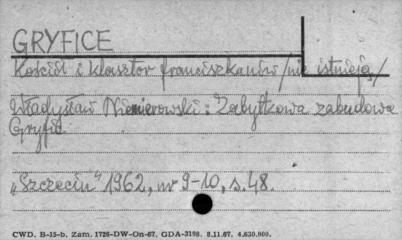 GRYFICE
Kościół i klasztor franciszkanów /nie istnieją/
Władysław Niemierowski: Zabytkowa zabudowa
Gryfic.
„Szczecin" 1962, nr 9-10, s. 48.
CWD. B-15-b. Zam. 1726-DW-On-67. GDA-3198. 8.11.67. 4.630.000.